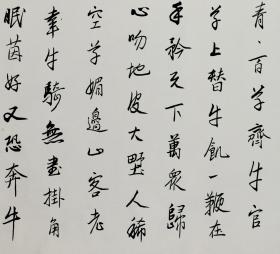 青、百草齊牛官
草上替牛飢一鞭在
手矜天下萬衆歸
心吻地皮大野人稀
空草媚邊山客老
牛騎無書掛角
眠茵好又恐奔牛